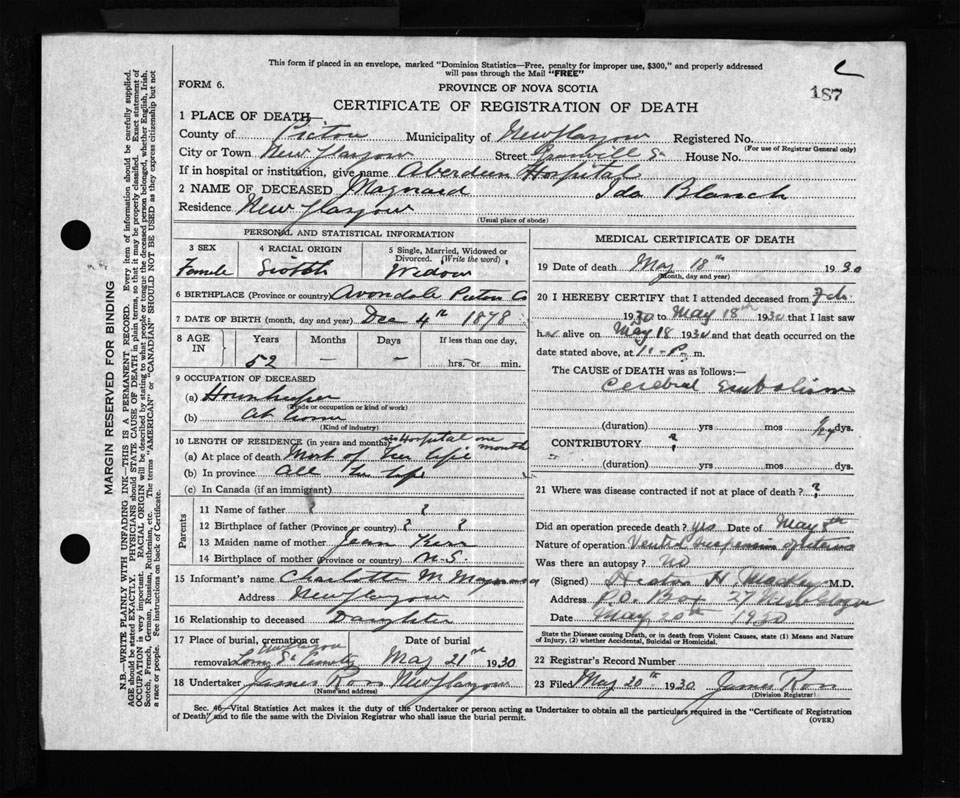 This form if placed in an envelope, marked "Dominion Statistics—Free, penalty for improper use, $300," and properly addressed
will pass through the Mail "FREE"
FORM 6.
PROVINCE OF NOVA SCOTIA
187
CERTIFICATE OF REGISTRATION OF DEATH
1 PLACE OF DEATH—
County of Pictou Municipality of New Glasgow Registered No.
(For use of Registrar General only)
City or Town New Glasgow Street House No.
If in hospital or institution, give name Aberdeen Hospital
2 NAME OF DECEASED Maynard Ida Blanch
Residence New Glasgow
(Usual place of abode)
PERSONAL AND STATISTICAL INFORMATION
3 SEX
Female
4 RACIAL ORIGIN
Scotch
5 Single, Married, Widowed or
Divorced. (Write the word)
Widow
6 BIRTHPLACE (Province or country) Avondale Pictou Co
7 DATE OF BIRTH (month, day and year) Dec 4th 1878
8 AGE
IN
Years
52
Months
—
Days
—
If less than one day,
hrs. or min.
9 OCCUPATION OF DECEASED
(a) Housekeeper
(Trade or occupation or kind of work)
(b) At home
(Kind of industry)
10 LENGTH OF RESIDENCE (in years and months) Hospital one
month
(a) At place of death Most of her life
(b) In province all her life
(c) In Canada (if an immigrant)
Parents
11 Name of father ? ?
12 Birthplace of father (Province or country) ? ?
13 Maiden name of mother Jean
14 Birthplace of mother (Province or country) N.S.
15 Informant's name Charlotte M Maynard
Address New Glasgow
16 Relationship to deceased Daughter
17 Place of burial, cremation or
removal
New Glasgow
Date of burial
May 21st 1930
18 Undertaker James Ross New Glasgow
(Name and address)
MEDICAL CERTIFICATE OF DEATH
19 Date of death May 18th 1930
(Month, day and year)
20 I HEREBY CERTIFY that I attended deceased from Feb.
1930 to May 18th 1930 that I last saw
her alive on May 18 1930 and that death occurred on the
date stated above, at 11 P. m.
The CAUSE of DEATH was as follows:—
Cerebral Embolism
(duration) yrs mos dys.
CONTRIBUTORY ?
(duration) yrs. mos. dys.
21 Where was disease contracted if not at place of death? ?
Did an operation precede death? yes Date of May 8th
Nature of operation Ventral Suspension of uterus
Was there an autopsy? no
(Signed) H M.D.
Address P.O. Box 27 New Glasgow
Date May 20th 1930
State the Disease causing Death, or in death from Violent Causes, state (1) Means and Nature
of Injury, (2) whether Accidental, Suicidal or Homicidal.
22 Registrar's Record Number
23 Filed May 20th 1930 James Ross
(Division Registrar)
Sec. 46—Vital Statistics Act makes it the duty of the Undertaker or person acting as Undertaker to obtain all the particulars required in the "Certificate of Registration
of Death" and to file the same with the Division Registrar who shall issue the burial permit.
(OVER)
MARGIN RESERVED FOR BINDING
N.B.—WRITE PLAINLY WITH UNFADING INK—THIS IS A PERMANENT RECORD. Every item of information should be carefully supplied.
AGE should be stated EXACTLY. PHYSICIANS should STATE CAUSE OF DEATH in plain terms, so that it may be properly classified. Exact statement of
OCCUPATION is very important. RACIAL ORIGIN will be described by stating to what people or tongue the deceased person belonged, whether English, Irish,
Scotch, French, German, Russian, Ruthenian, etc. The terms "AMERICAN" or "CANADIAN" SHOULD NOT BE USED as they express citizenship but not
a race or people. See instructions on back of Certificate.